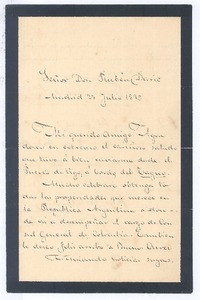 Señor Don Rubén Darío
Madrid 23 Julio 1893
Mi querido Amigo: Agra
dezco en extremo el cariñoso saludo
que tuvo á bien enviarme desde el
Puerto de Vigo, á bordo del
Mucho celebraré obtenga to
das las prosperidades que merece en
la República Argentina a don-
de va a desempeñar el cargo de Con
sul General de Colombia. Tambien
le deseo feliz arribo a Buenos Aires.
Esperando noticias suyas,